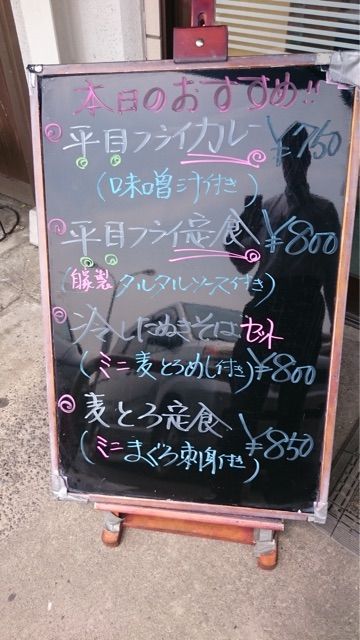 本日のおすすめ!!
平目フライカレー ¥750
(味噌汁付き)
平目フライ定食 ¥800
(自家製タルタルソース付き)
冷したぬきそばセット
(ミニ麦とろめし付き) ¥800
麦とろ定食
(ミニまぐろ刺身付き) ¥850